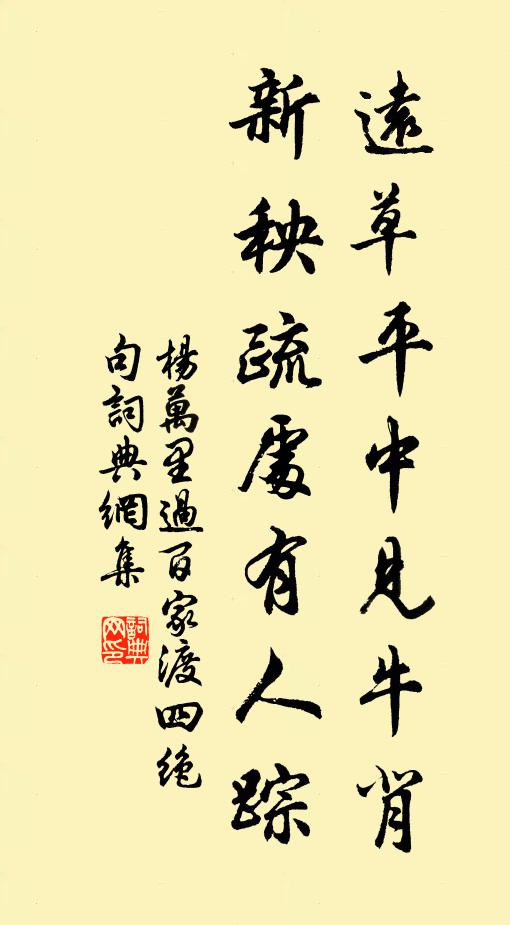 遠草平中見牛背
新秧疏處有人踪
楊萬里過百家渡四絕
句詞典網集
詞典
网印